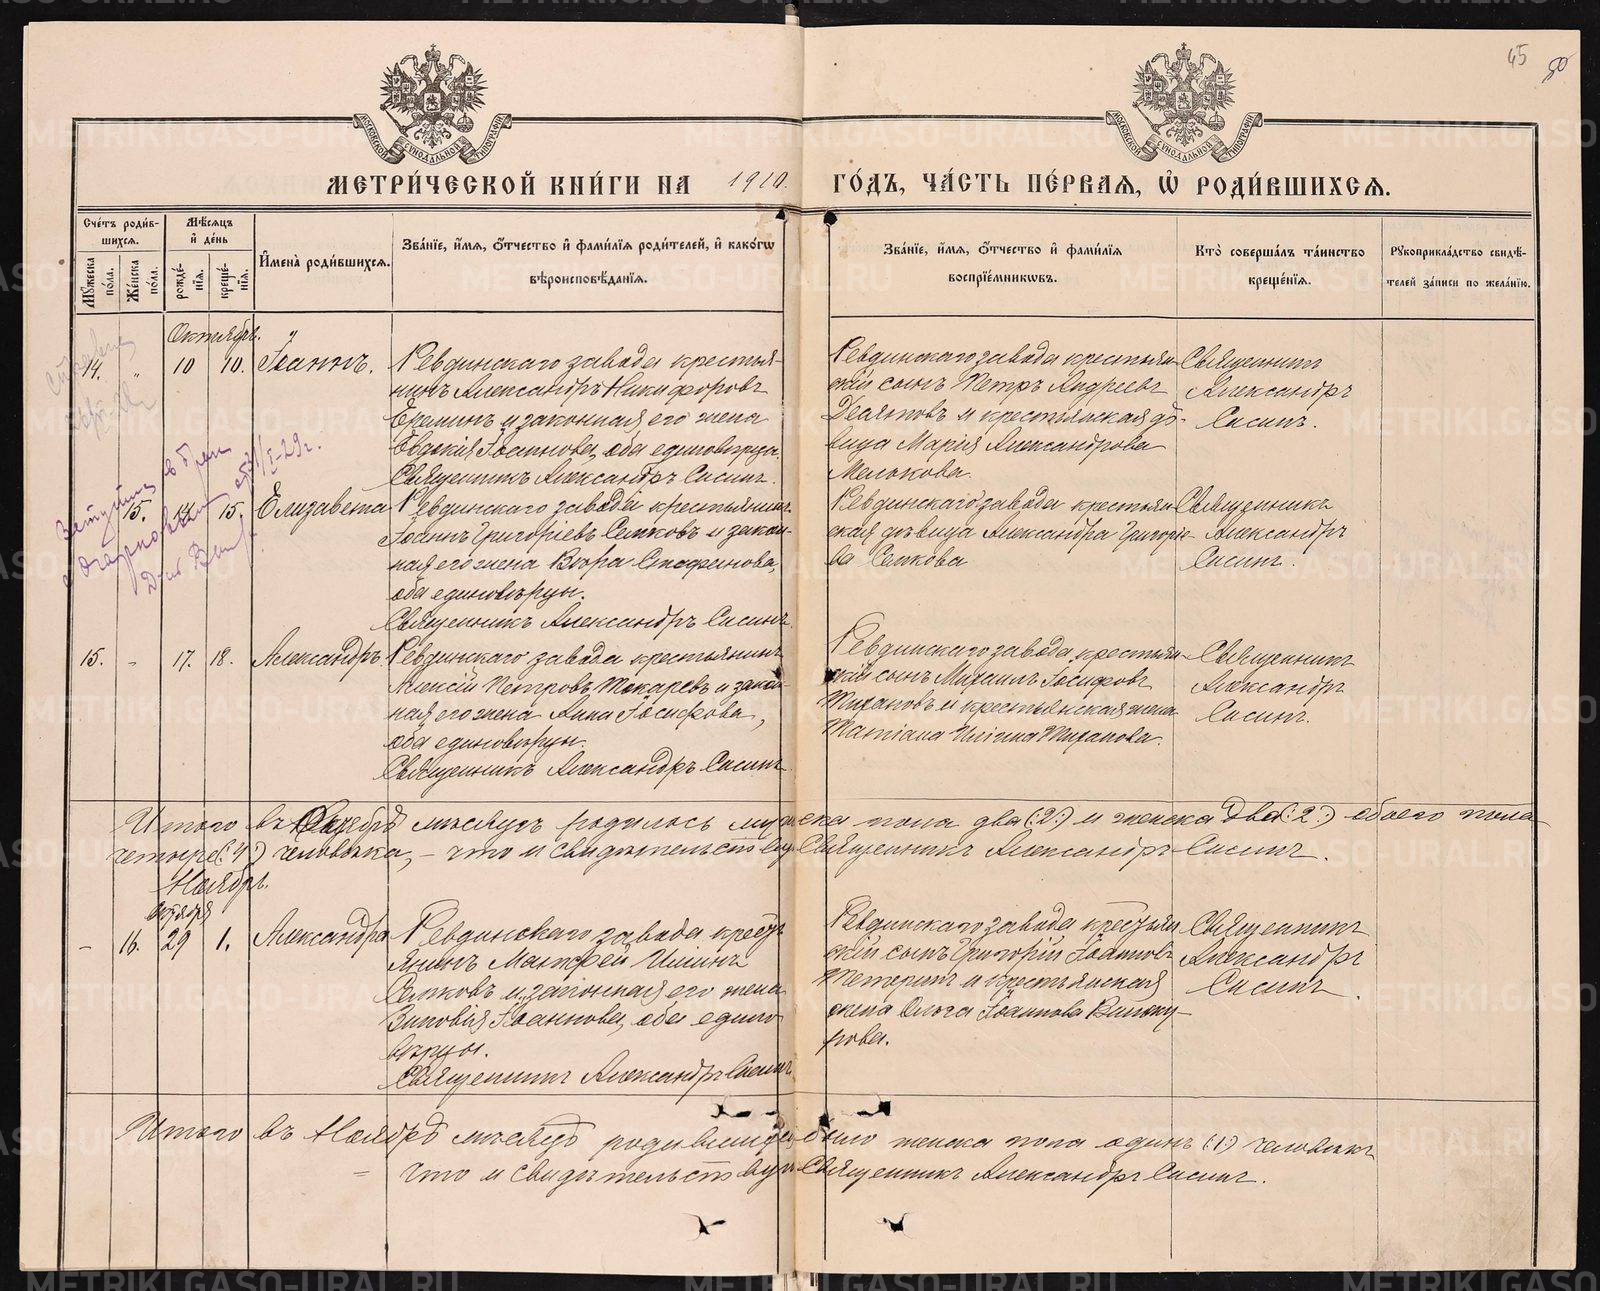 45
50
МОСКОВСКОЙ СѴНОДАЛЬНОЙ ТИПОГРАФІИ
МОСКОВСКОЙ СѴНОДАЛЬНОЙ ТИПОГРАФІИ
МЕТРИ́ЧЕСКОЙ КНИ́ГИ НА 1910. ГО́ДЪ, ЧА́СТЬ ПЕ́РВАѦ, Ѡ РОДИ́ВШИХСѦ.
Сче́тъ роди́в-
шихсѧ.
Мꙋ́жеска по́ла.
Же́нска по́ла.
Мѣ́сѧцъ
и҆ де́нь
рожде́-
нїѧ.
креще́-
нїѧ.
И҆мена̀ роди́вшихсѧ.
Зва́нїе, и҆́мѧ, ѻ҆́тчество и҆ фами́лїѧ роди́телей, и҆ како́гѡ
вѣроисповѣ́данїѧ.
Зва́нїе, и҆́мѧ, ѻ҆́тчество и҆ фами́лїѧ
воспрїе́мникѡвъ.
Кто̀ соверша́лъ та́инство
креще́нїѧ.
Рꙋкоприкла́дство свидѣ́-
телей за́писи по жела́нїю.
Октябрь. "
14. " 10 10. Іоаннъ.
Ревдинскаго завода крестья-
нинъ Александръ Никифоровъ
Ереминъ и законная его жена
Евдокія Іоаннова, оба единоверцы.
Священникъ Александръ Сасинъ.
Ревдинскаго завода крестьян-
скій сынъ Петръ Андреевъ
Десятовъ и крестьянская дѣ-
вица Марія Александрова
Мелькова.
Священникъ
Александръ
Сасинъ.
15. 14 15. Елизавета
Ревдинскаго завода крестьянинъ
Іоаннъ Григоріевъ Семковъ и закон-
ная его жена Вѣра Стефанова,
оба единовѣрцы.
Священникъ Александръ Сасинъ.
Ревдинскаго завода крестьян-
ская дѣвица Александра Григорье-
ва Семкова
Священникъ
Александръ
Сасинъ.
15. - 17. 18. Александръ.
Ревдинскаго завода крестьянинъ
Алексій Петровъ Токаревъ и закон-
ная его жена Анна Іосифова,
оба единовѣрцы.
Священникъ Александръ Сасинъ
Ревдинскаго завода крестьян-
скій сынъ Михаилъ Іосифовъ
и крестьянская жена
Татіана
Священникъ
Александръ
Сасинъ.
Итого въ Октябрѣ мѣсяцѣ родилось мужеска пола два (:2:) и женска два (:2:) обоего пола
четыре (:4:) человѣка, – что и свидѣтельствую Священникъ Александръ Сасинъ.
Ноябрь.
Октября
- 16. 29 1. Александра
Ревдинскаго завода кресть-
янинъ Матфей Илiинъ
Семковъ и законная его жена
Зиновія Іоаннова, оба едино-
вѣрцы.
Священникъ Александръ Сасинъ
Ревдинскаго завода крестьян-
скій сынъ Григорій Іоанновъ
и крестьянская
жена Ольга Іоаннова
Священникъ
Александръ
Сасинъ.
Итого въ Ноябрѣ мѣсяцѣ родившихся было женска пола одинъ (:1:) человѣкъ
= что и свидѣтельствую Священникъ Александръ Сасинъ.
METRIKI.GASO-URAL.RU